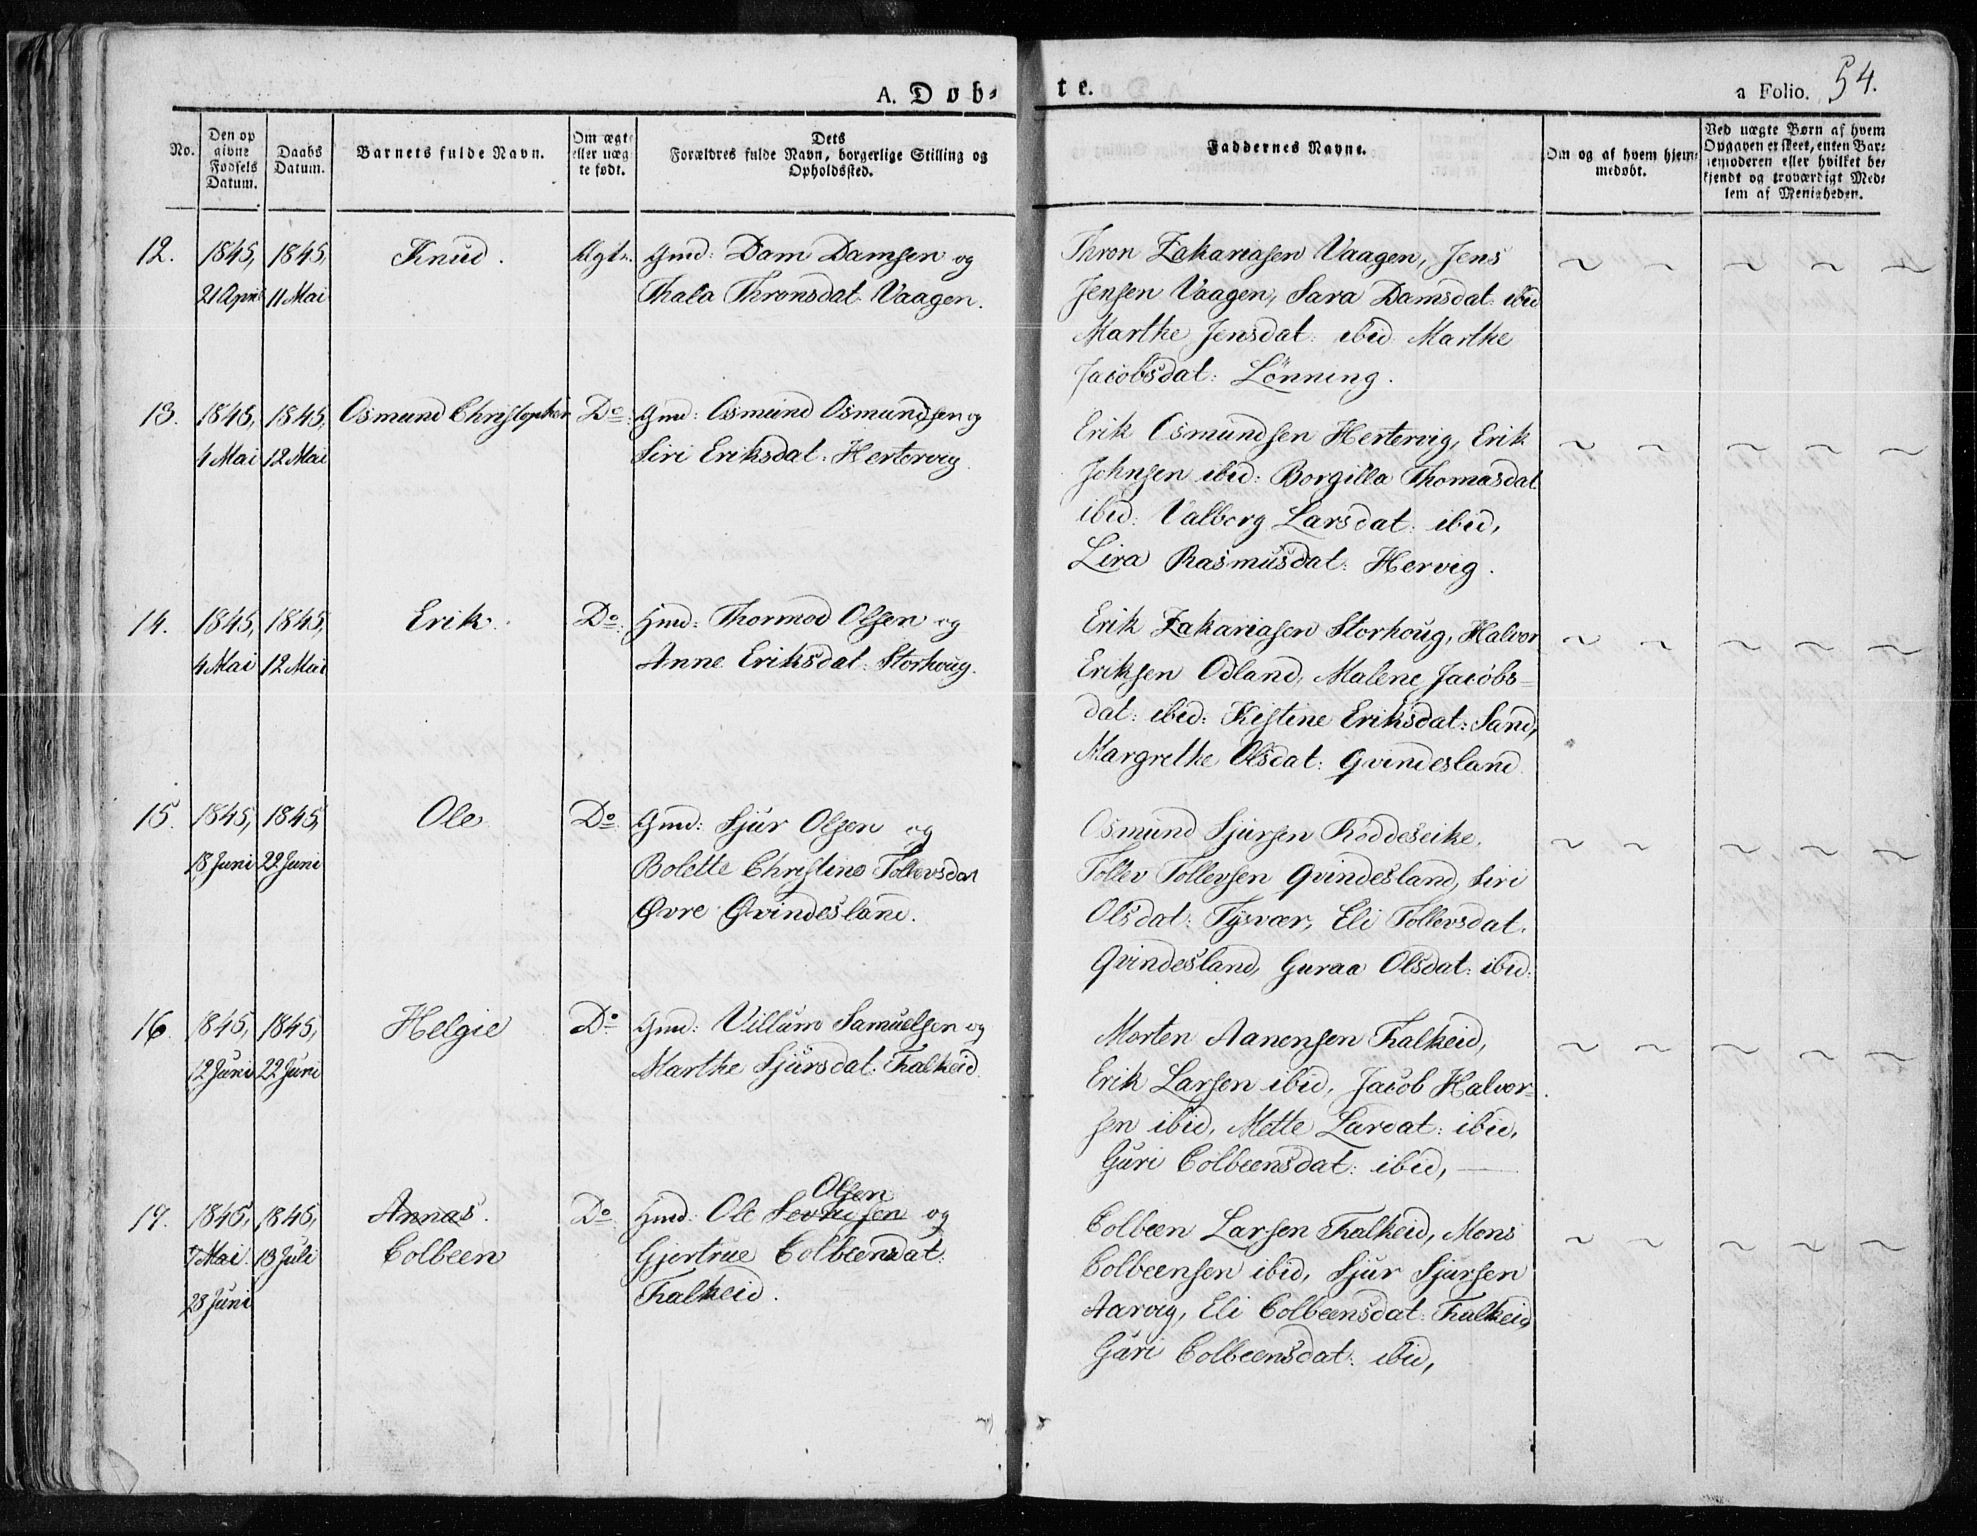 A. Døb=
te.
a Folio. 54.
No.
Den op
givne
Fødsels
Datum.
Daabs
Datum.
Barnets fulde Navn.
Om ægte
eller uæg
te født.
Dets
Forældres fulde Navn, borgerlige Stilling og
Opholdssted.
Faddernes Navne.
Om og af hvem hjem=
medøbt.
Ved uægte Børn af hvem
Opgaven er skeet, enten Bar=
nemoderen eller hvilket be=
kjendt og troværdigt Med=
lem af Menigheden.
12. 1845, 1845, Knud. Ægte. Gmd: Dam Damsen og
21 April 11 Mai Thala Thronsdat. Vaagen.
Thron Zakariasen Vaagen, Jens
Jensen Vaagen, Sara Damsdat: ibid
Marthe Jensdat: ibid Marthe
Jacobsdat: Lönning.
13. 1845, 1845, Osmund Christopher Do. Gmd: Osmund Osmundsen og
4 Mai 12 Mai Siri Eriksdat: Hertervig.
Erik Osmundsen Hertervig, Erik
Johnsen ibid: Borgilla Thomasdat
ibid: Valborg Larsdat: ibid,
Lira Rasmusdat: Hervig.
14. 1845, 1845, Erik. Do. Hmd: Thormod Olsen og
4 Mai 12 Mai Anne Eriksdat: Storhoug.
Erik Zakariasen Storhoug, Halvor
Eriksen Odland, Malene Jacobs-
dat: ibid: Kistine Eriksdat: Sand,
Margrethe Olsdat: Qvindesland
15. 1845, 1845, Ole Do. Gmd: Sjur Olsen og
18 Juni 22 Juni Bolette Christine Tollevsdat
Øvre Qvindesland.
Osmund Sjursen Röddeseike,
Tollev Tollevsen Qvindesland, Siri
Olsdat: Tysvær, Eli Tollevsdat.
Qvindesland, Guraa Olsdat: ibid:
16. 1845, 1845, Helgie Do. Gmd: Villum Samuelsen og
12 Juni 22 Juni Marthe Sjursdat: Falkeid
Morten Aanensen Falkeid,
Erik Larsen ibid, Jacob Halvor-
sen ibid, Mette Lardat: ibid,
Guri Colbeensdat: ibid,
Olsen
17. 1845, 1845, Annas. Do. Hmd: Ole og
7 Mai. 13 Juli Colbeen Gjertrue Colbeensdat:
28 Juni Falkeid.
Colbeen Larsen Falkeid, Mons
Colbeensen ibid, Sjur Sjursen
Aarvig, Eli Colbeensdat: Falkeid
Guri Colbeensdat: ibid,